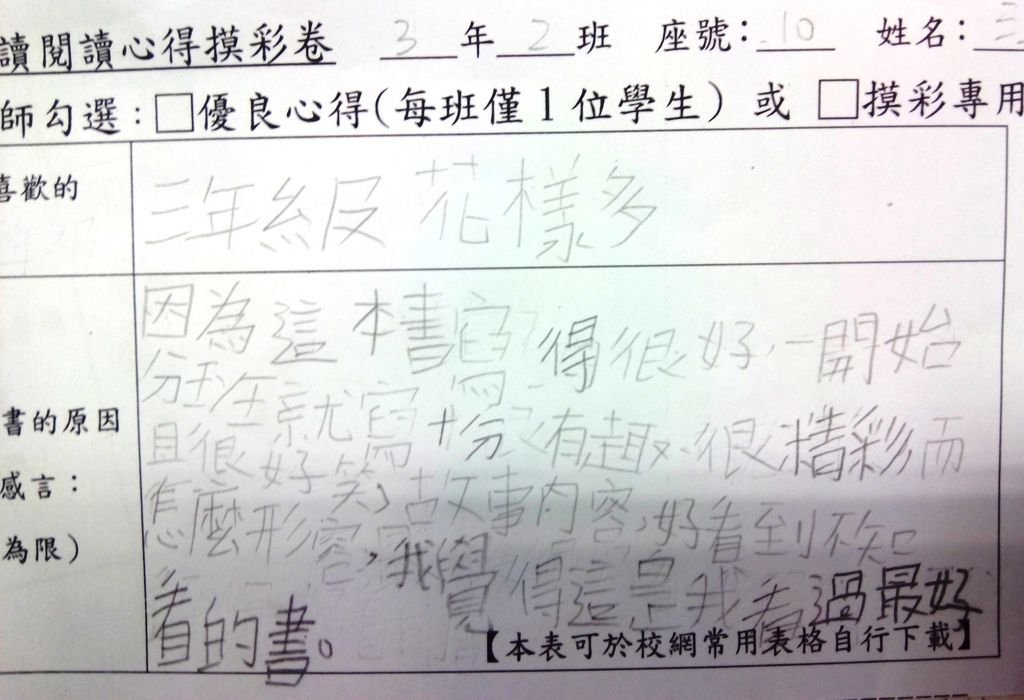 讀閱讀心得摸彩卷 3年2班 座號：10 姓名：三
師勾選：□優良心得(每班僅1位學生) 或 □摸彩專用
喜歡的
三年級花樣多
因為這本書寫得很好,一開始
分班就寫十分有趣,很精彩而
且很好笑,故事內容,好看到不知
書的原因
感言：
為限)
怎麼形容,我覺得這是我看過最好
看的書。
【本表可於校網常用表格自行下載】